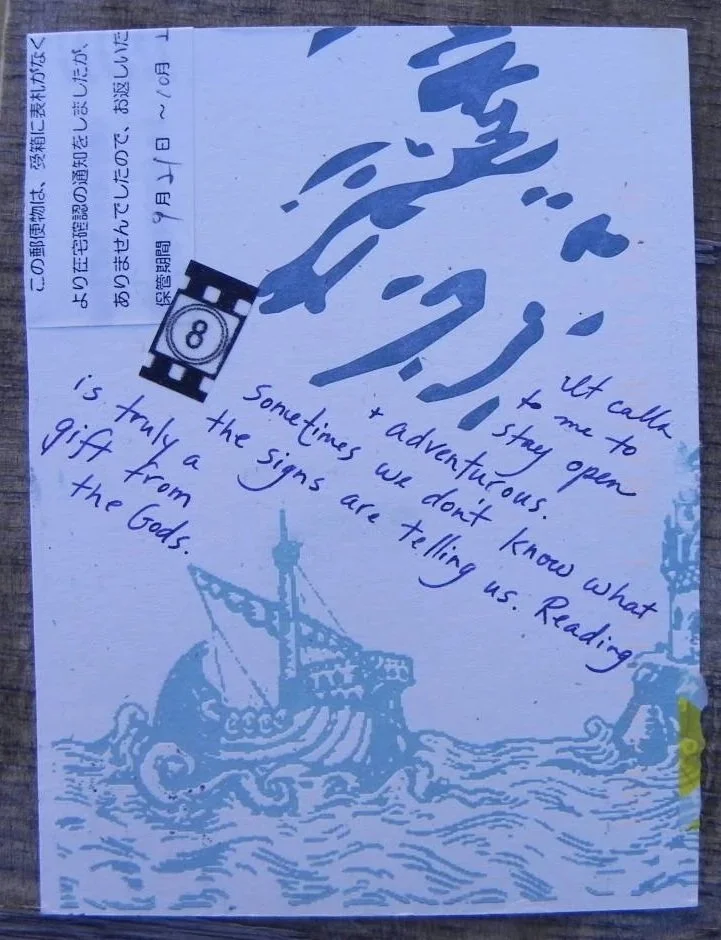 この郵便物は、受箱に表札がなく
より在宅確認の通知をしましたが、
ありませんでしたので、お返しいた
保管期間 9月21日 ~10月
8
It calls
to me to
stay open
+ adventurous.
Sometimes we don't know what
the signs are telling us. Reading
is truly a
gift from
the Gods.